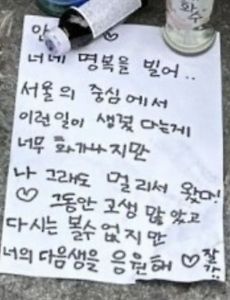 안
너네 명복을 빌어..
서울의 중심에서
이런일이 생겼다는게
너무 화가나지만
나 그래도 멀리서 왔어!
♡ 그동안 고생 많았고
다시는 볼수 없지만
너의 다음생을 응원해 ♡ 잘가!
화수